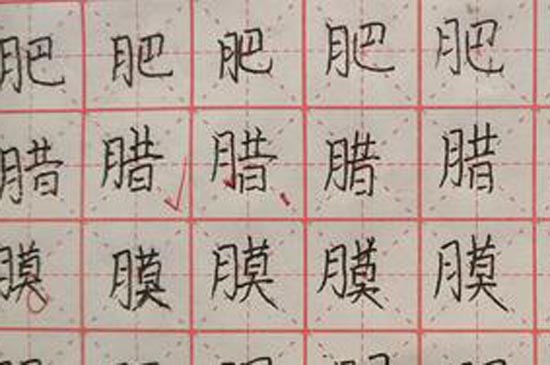 肥肥肥肥肥
腊腊腊腊腊
膜膜膜膜膜